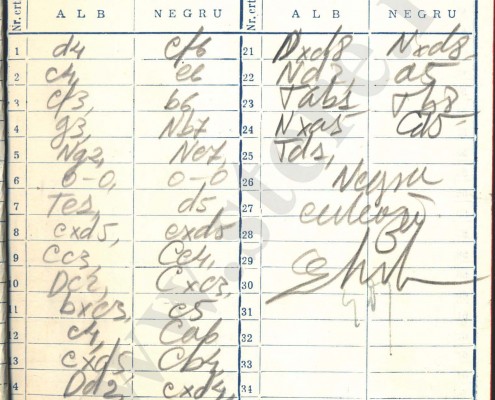 Nr. crt. ALB NEGRU Nr. crt. ALB NEGRU
1 d4 Cf6 21 Dxd8 Nxd8,
2 c4, e6 22 Nd2, a5
3 Cf3, b6 23 Tab1 Tb8,
4 g3, Nb7 24 Nxa5 Cd5
5 Ng2, Ne7, 25 Td1,
6 0-0, 0-0 26 Negru
7 Te1, d5, 27
8 cxd5, exd5 28
9 Cc3, Ce4, 29
10 Dc2, Cxc3, 30
11 bxc3, c5 31
12 c4, Ca6 32
13 cxd5, Cb4, 33
14 Dd2, cxd4, 34
www.stere.r